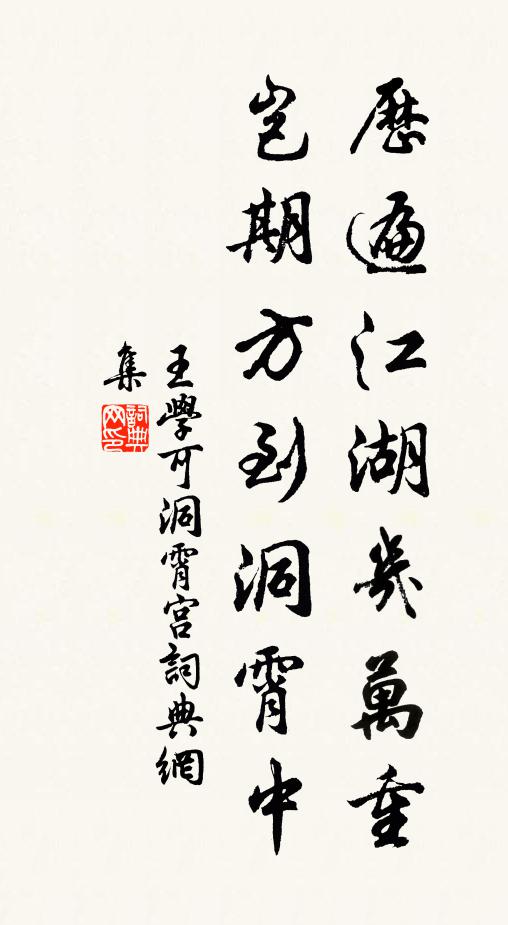 歷遍江湖幾萬重
豈期方到洞霄中
王學可洞霄宮詞典網
集
詞典網印